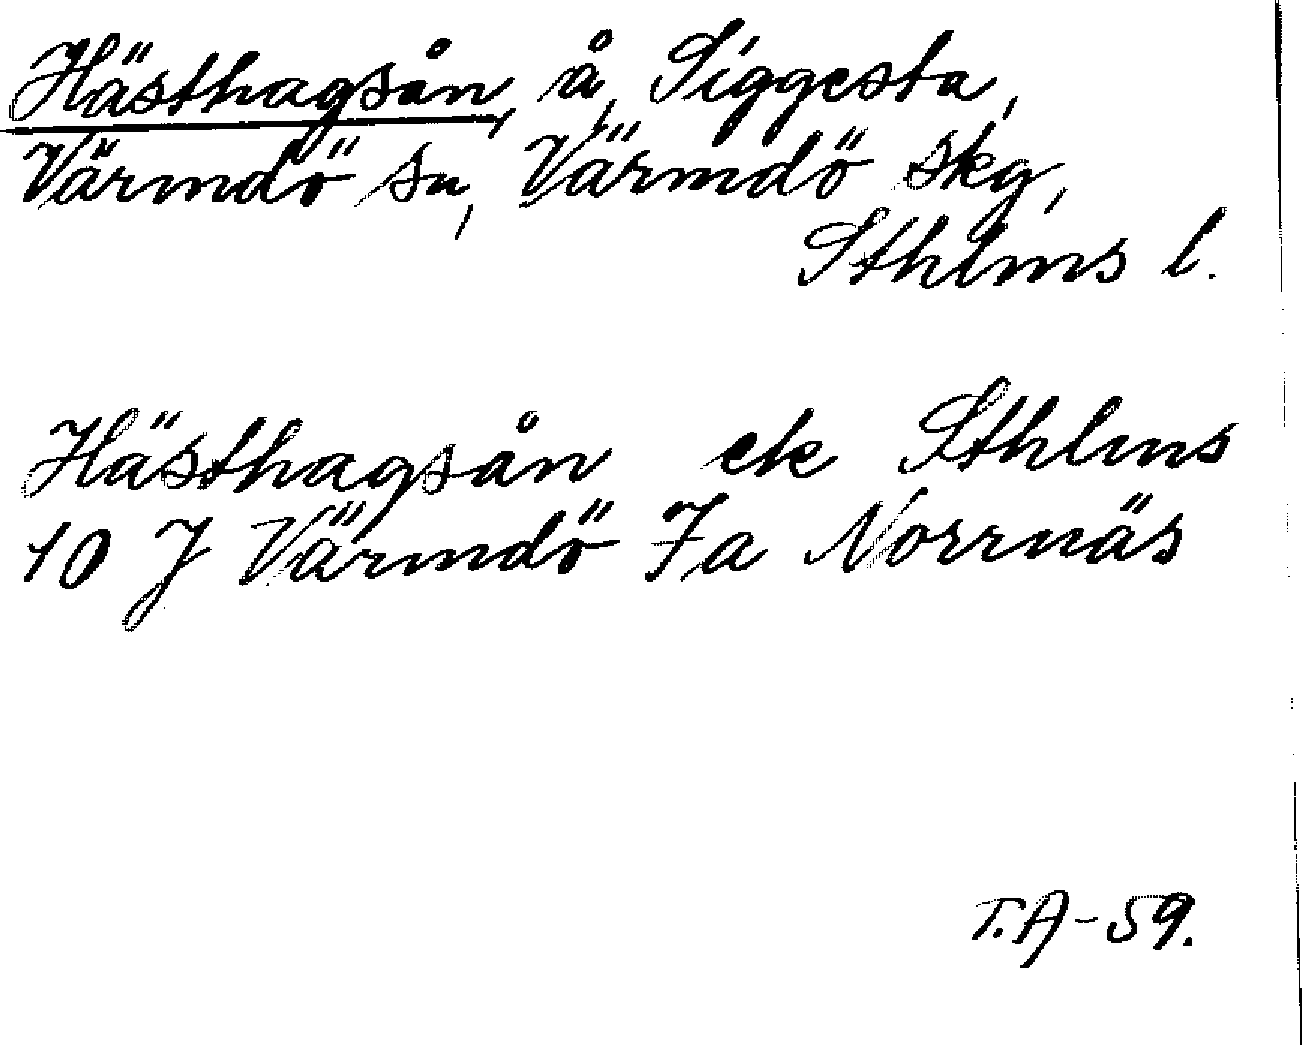 Hästhagsån, å, Siggesta,
Värmdö sn, Värmdö skg,
Sthlms l.
Hästhagsån ek Sthlms
10 J Värmdö 7a Norrnäs
T.A-59.